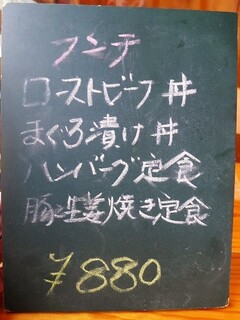 ランチ
ローストビーフ丼
まぐろ漬け丼
ハンバーグ定食
豚生姜焼き定食
¥880